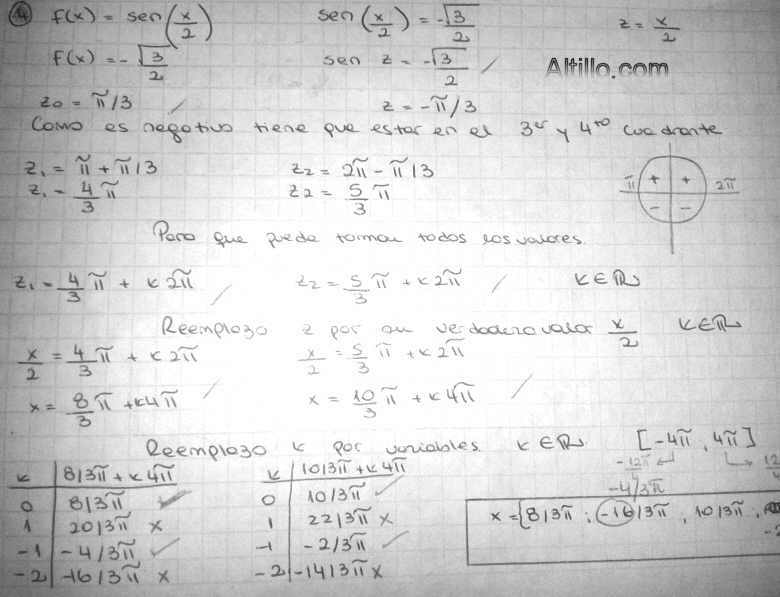 14 f(x) = sen(x/2) sen(x/2) = -√3/2 z = x/2
f(x) = -√3/2 sen z = -√3/2
Altillo.com
z0 = π/3 z = -π/3
Como es negativo tiene que estar en el 3er y 4to cuadrante
z1 = π + π/3 z2 = 2π - π/3
z1 = 4/3 π z2 = 5/3 π
π + + 2π
- -
Para que pueda tomar todos los valores.
z1 = 4/3 π + k2π z2 = 5/3 π + k2π k∈ℝ
Reemplazo z por su verdadero valor x/2 k∈ℝ
x/2 = 4/3 π + k2π x/2 = 5/3 π + k2π
x = 8/3 π + k4π x = 10/3 π + k4π
Reemplazo k por variables. k∈ℝ [-4π, 4π]
k 8/3π + k4π k 10/3π + k4π -12π 12
0 8/3π ✓ 0 10/3π ✓ -4/3π
1 20/3π x 1 22/3π x x = {8/3π ; -16/3π , 10/3π ,
-1 -4/3π ✓ -1 -2/3π ✓ -2
-2 -16/3π x -2 -14/3π x